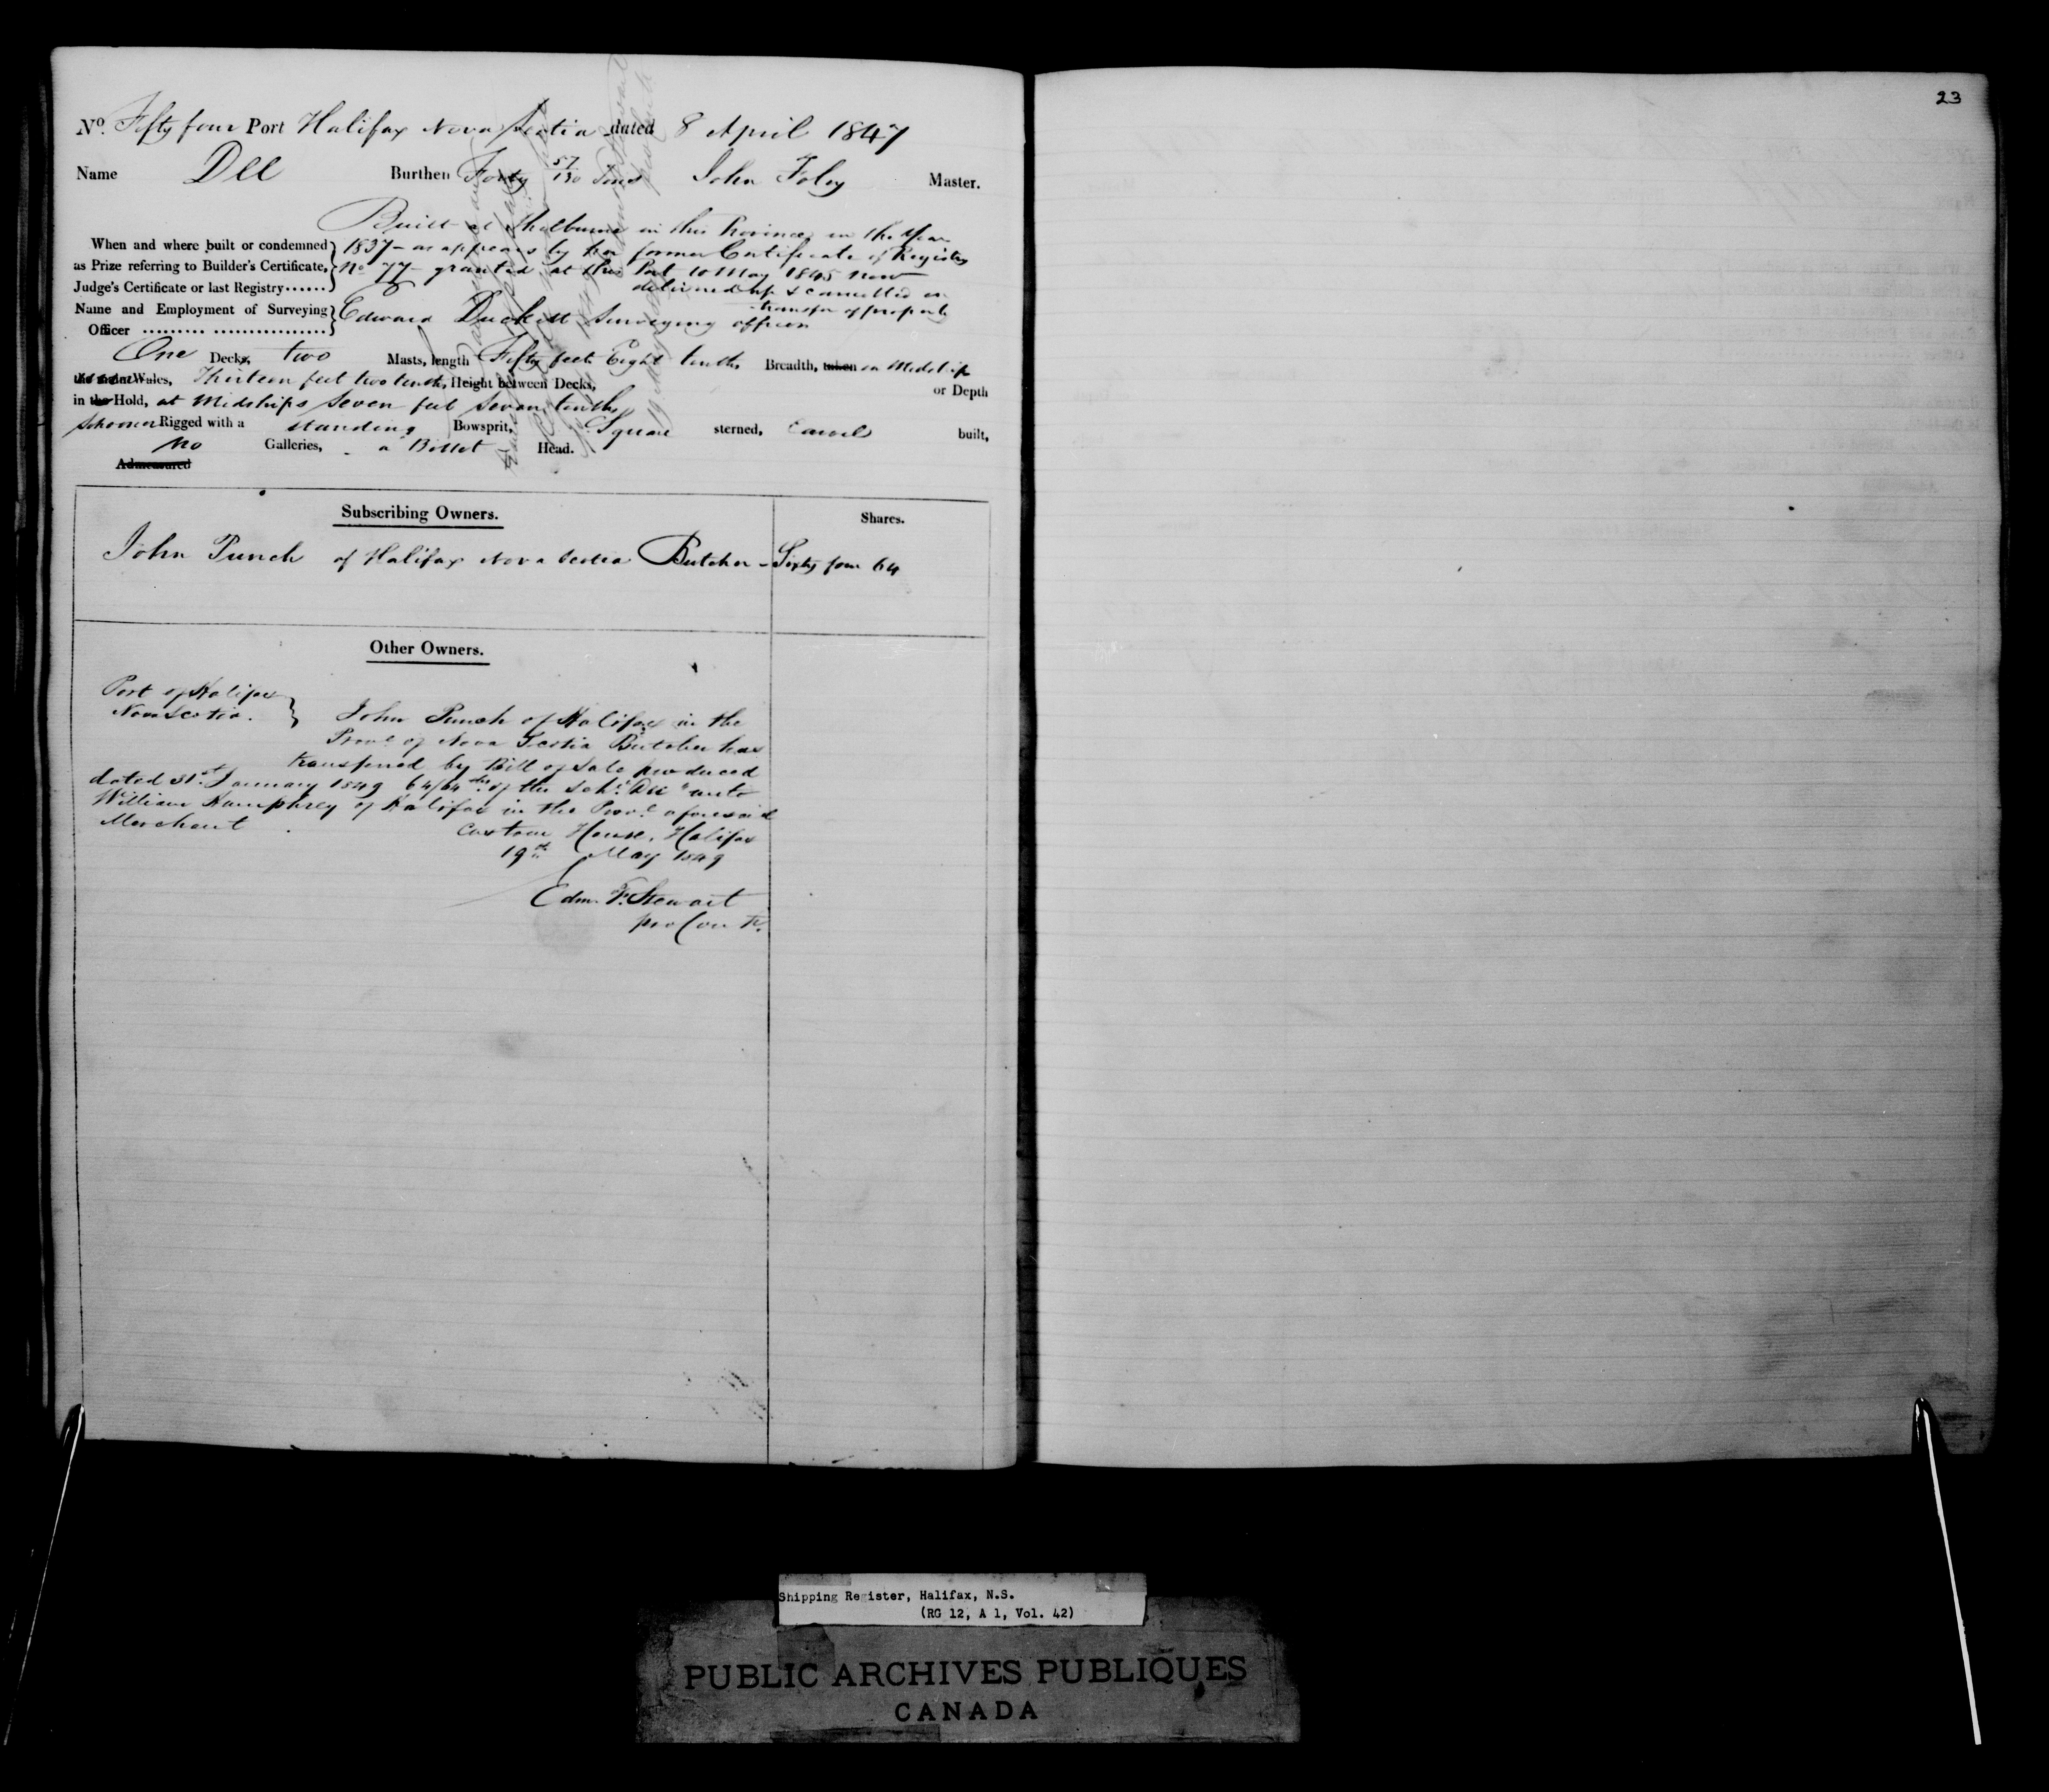 23
No. Fifty four Port Halifax Nova Scotia dated 8 April 1847
Name Dee Burthen Forty 57/130 Tons John Foley Master.
Built at Shelburne in this Province in the Year
When and where built or condemned 1837 - as appears by her former Certificate of Registry
as Prize referring to Builder's Certificate, No 77 granted at this Port 10 May 1845 now
Judge's Certificate or last Registry...... delivered up & cancelled on
transfer of property
Name and Employment of Surveying Edward Duckett Surveying officer
Officer ......... ................
One Decks, two Masts, length Fifty feet Eight tenths Breadth, taken on Midship
Wales, Thirteen feet two tenths, Height between Decks, or Depth
in the Hold, at Midships Seven feet Seven tenths
Schooner Rigged with a standing Bowsprit, Square sterned, Carvel built,
no Galleries, a Billet Head.
Admeasured
Subscribing Owners. Shares.
John Punch of Halifax Nova Scotia Butcher - Sixty four 64
Other Owners.
Port of Halifax
Nova Scotia. John Punch of Halifax in the
Provce of Nova Scotia Butcher has
transferred by Bill of Sale produced
dated 31st January 1849 64/64ths of the Schr "Dee" unto
William Humphrey of Halifax in the Provce aforesaid
Merchant
Custom House, Halifax
19th May 1849
Edm. F. Stewart
pro Contr.
Shipping Register, Halifax, N.S.
(RG 12, A 1, Vol. 42)
PUBLIC ARCHIVES PUBLIQUES
CANADA